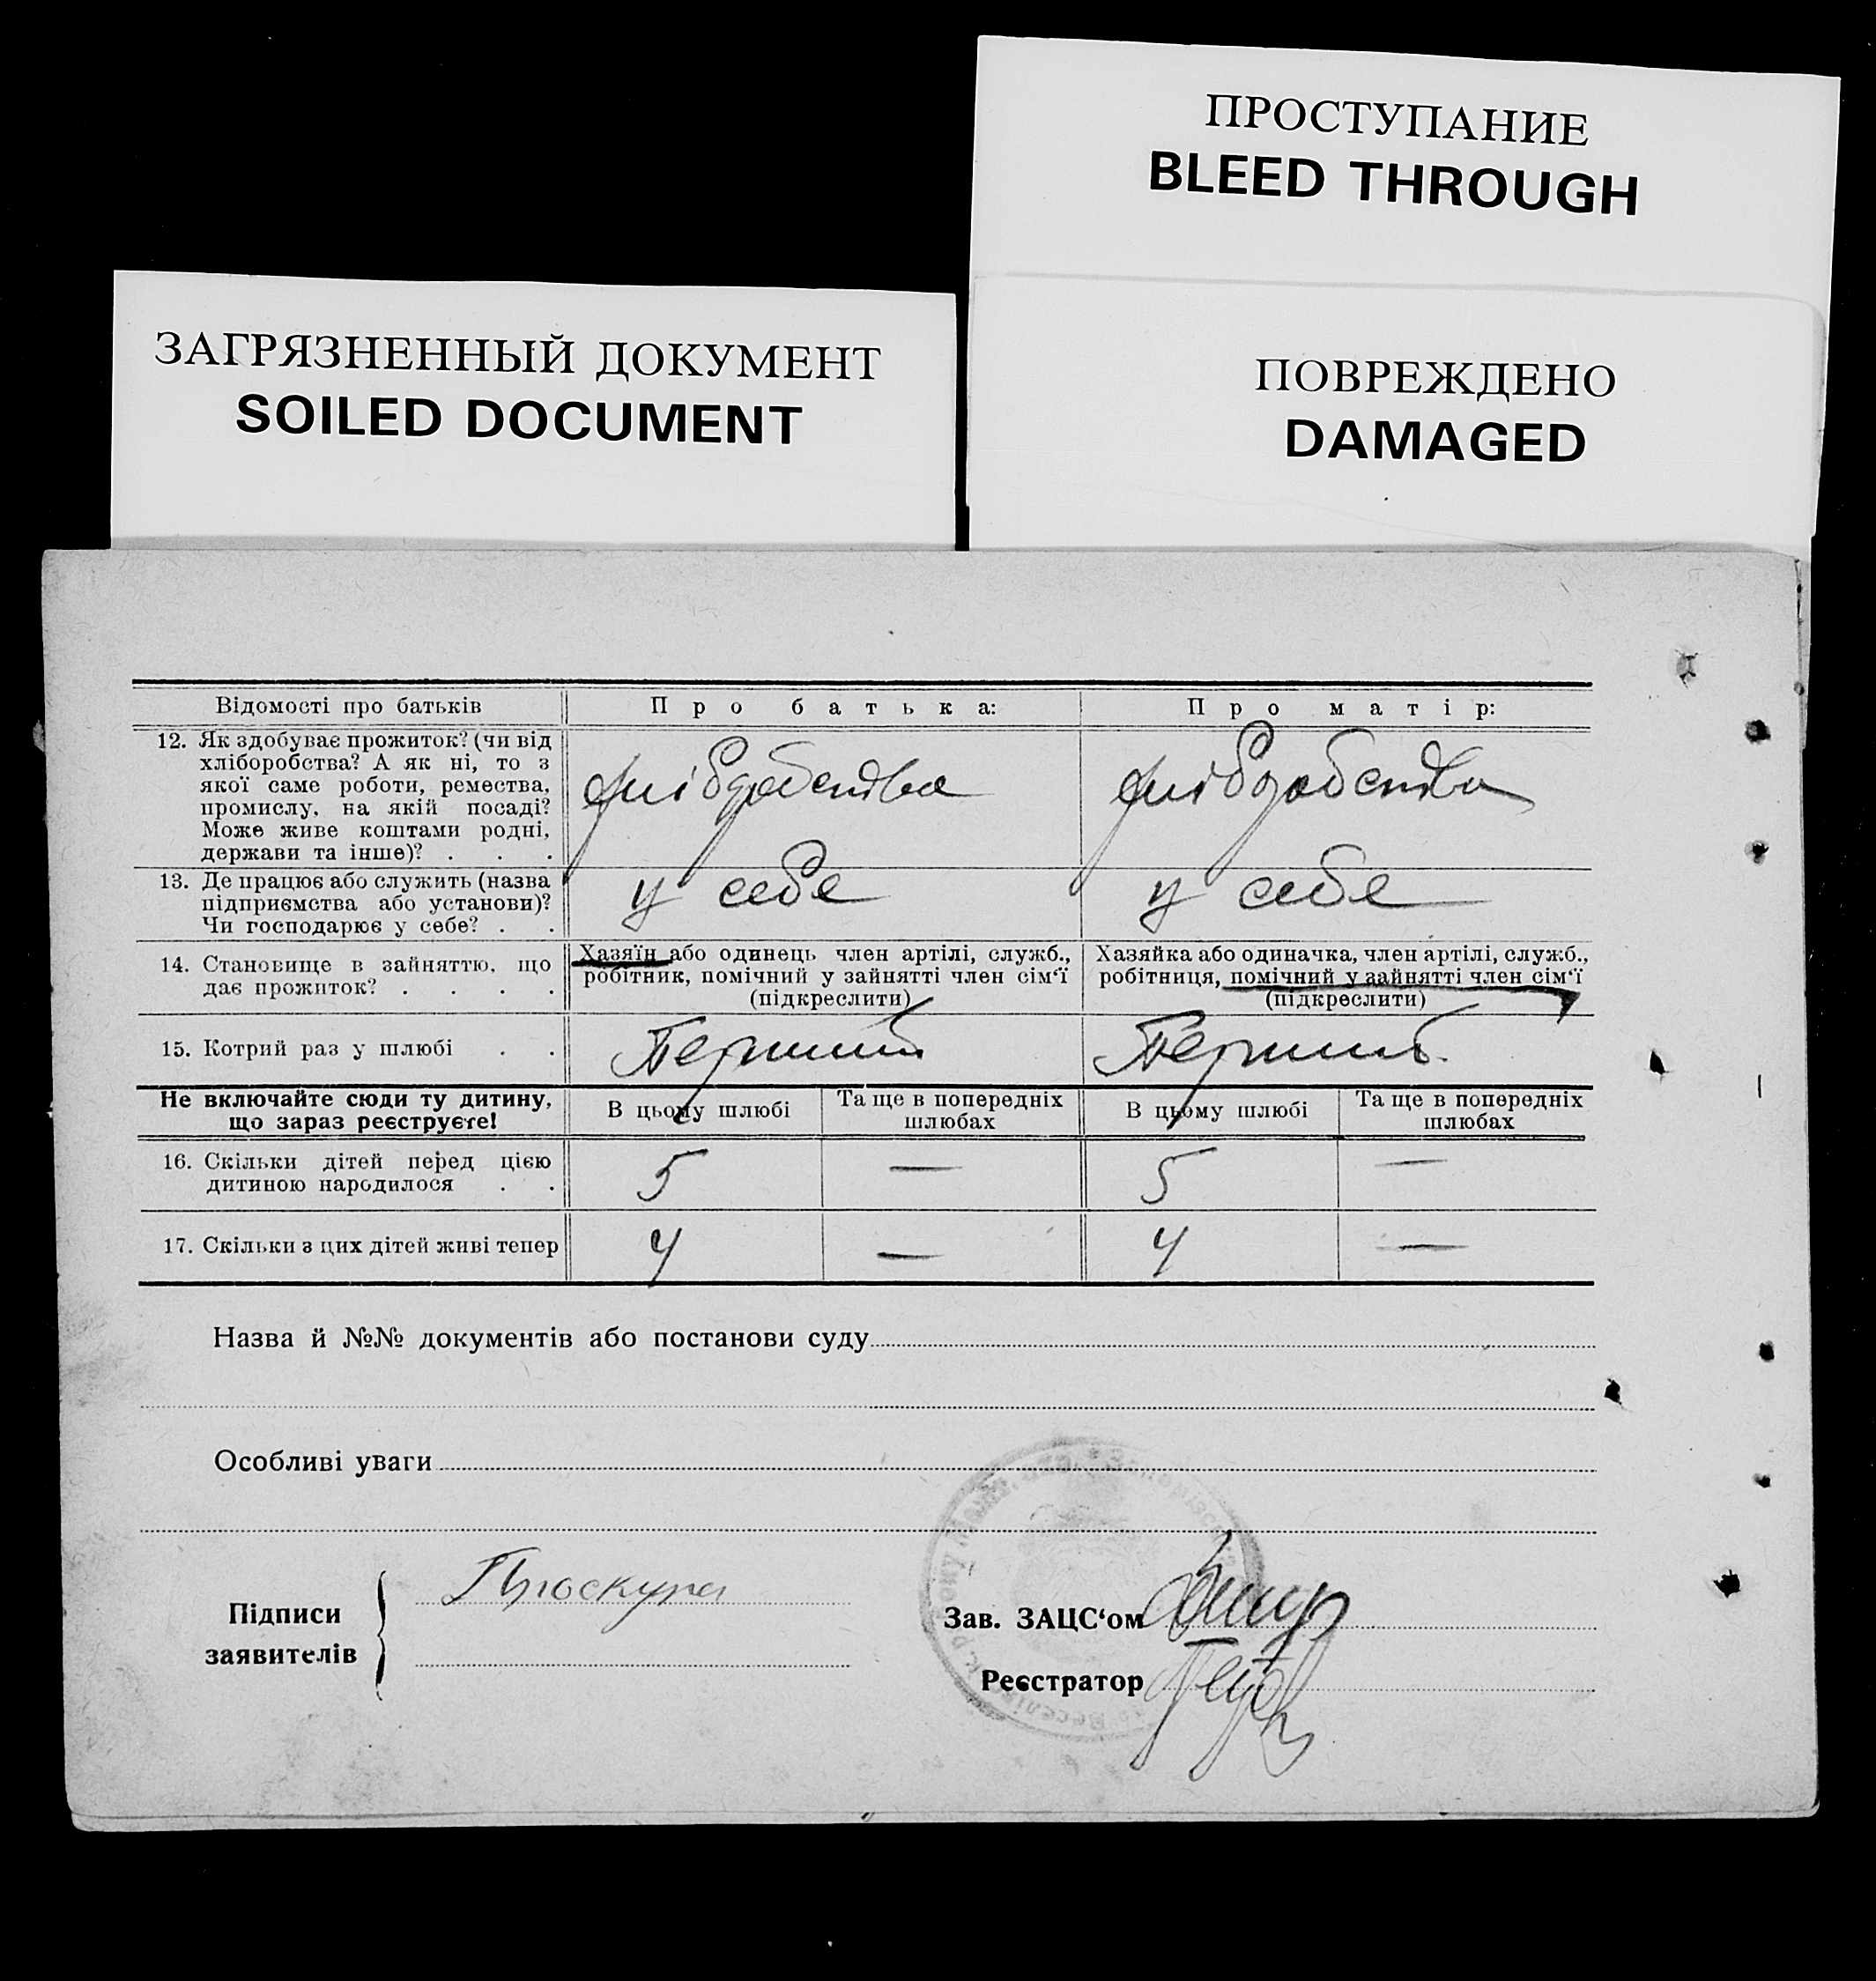 ПРОСТУПАНИЕ
BLEED THROUGH
ЗАГРЯЗНЕННЫЙ ДОКУМЕНТ
SOILED DOCUMENT
ПОВРЕЖДЕНО
DAMAGED
Відомості про батьків
Про батька:
Про матір:
12. Як здобуває прожиток? (чи від
хліборобства? А як ні, то з
якої саме роботи, ремества,
промислу, на якій посаді?
Може живе коштами родні,
держави та інше)? . . .
хліборобства
хліборобства
13. Де працює або служить (назва
підприємства або установи)?
Чи господарює у себе? . .
у себе
у себе
14. Становище в зайняттю, що
дає прожиток? . . . .
Хазяїн або одинець член артілі, служб.,
робітник, помічний у зайнятті член сім‘ї
(підкреслити)
Хазяйка або одиначка, член артілі, служб.,
робітниця, помічний у зайнятті член сім‘ї
(підкреслити)
15. Котрий раз у шлюбі . .
Перший
Перший
Не включайте сюди ту дитину,
що зараз реєструєте!
В цьому шлюбі
Та ще в попередніх
шлюбах
В цьому шлюбі
Та ще в попередніх
шлюбах
16. Скільки дітей перед цією
дитиною народилося . .
5
—
5
—
17. Скільки з цих дітей живі тепер
4
—
4
—
Назва й №№ документів або постанови суду
Особливі уваги
Підписи
заявителів
Проскура
Зав. ЗАЦС‘ом
Реєстратор